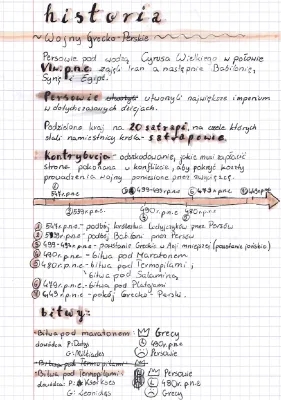 historia
Wojny Grecko-Perskie
Persowie pod wodzą Cyrusa Wielkiego w połowie
VI w. p.n.e. zajęli Iran a następnie Babilonię,
Syrię i Egipt.
Persowie utworzyli największe imperium
w dotychczasowych dziejach.
Podzielono kraj na 20 satrapi, na czele których
stali namiestnicy króla - satrapowie.
Kontrybucja - odszkodowanie, jakie musi zapłacić
strona pokonana w konflikcie, aby pokryć koszty
prowadzenia wojny poniesione przez zwycięzcę.
547r.p.n.e. 499-494r.p.n.e 479r.p.n.e 449r.p.n.e
539r.p.n.e. 490r.p.n.e 480r.p.n.e
547r.p.n.e - podbój królestwa Lidyjczyków przez Persów
539r.p.n.e - podbój Babilonii przez Persów
499-494r.p.n.e - powstanie Greków w Azji mniejszej (powstanie jońskie)
490r.p.n.e - bitwa pod Maratonem
480r.p.n.e - bitwa pod Termopilami i
bitwa pod Salaminą
479r.p.n.e - bitwa pod Platejami
449r.p.n.e - pokój Grecko-Perski.
bitwy:
Bitwa pod maratonem: Grecy
dowódca: P: Datys 490r.p.n.e
G: Miltiades Persowie
Bitwa pod Termopilami
Bitwa pod Termopilami: Persowie
dowódca: P: Kserkses 480r.p.n.e
G: Leonidas Grecy